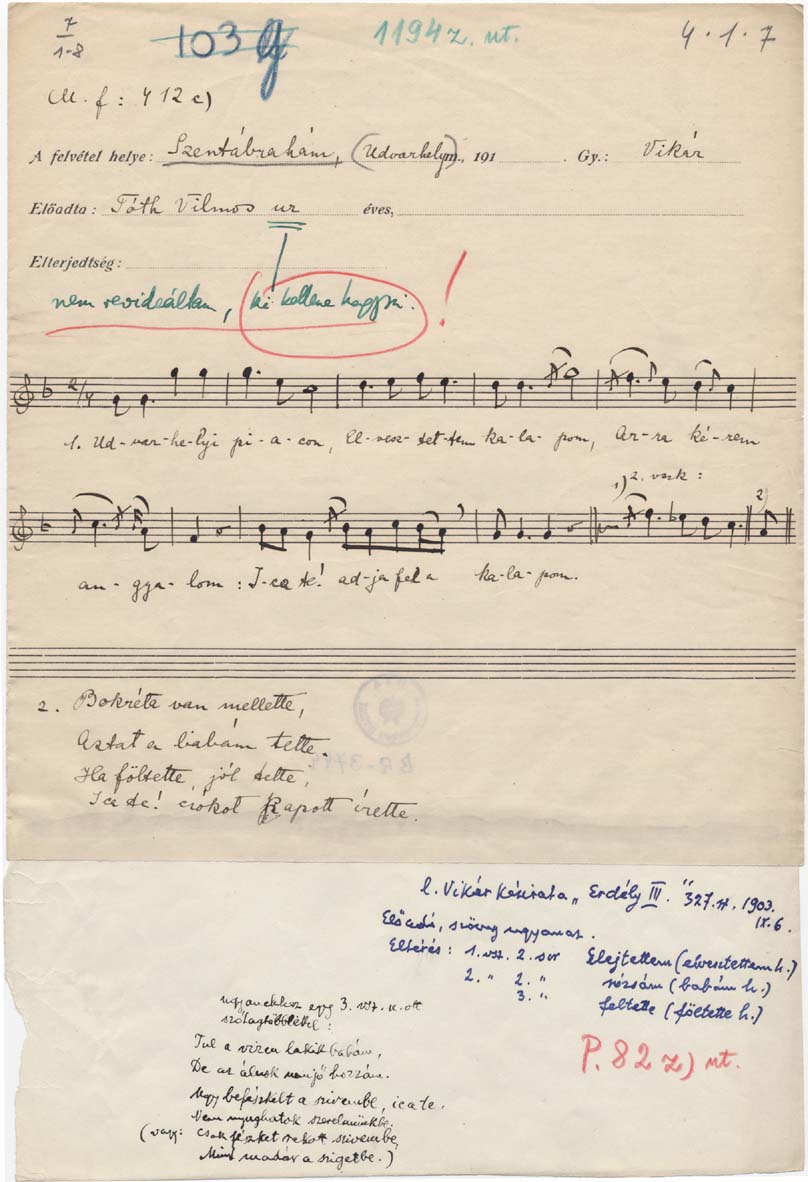 7
1-8
103 g
1194 z. ut.
4.1.7
M. f: 412 c)
A felvétel helye: Szentábrahám, (Udvarhely m., 191 . Gy.: Vikár
Előadta: Tóth Vilmos ur éves,
Elterjedtség:
nem revideáltam, ki kellene hagyni. !
2/4
1. Ud-var-he-lyi pi-a-con, El-vesz-tet-tem ka-la-pom, Ar-ra ké-rem
1) 2. vszk: 2)
an-gya-lom: I-ca te! ad-ja fel a ka-la-pom.
2. Bokréta van mellette,
Aztat a babám tette.
Ha föltette, jól tette,
Ica te! csókot kapott érette.
BR-
l. Vikár kézirata „Erdély III." 327. sz. 1903.
IX. 6.
Előadó, szöveg ugyanaz.
Eltérés: 1. vsz. 2. sor Elejtettem (elvesztettem h.)
2. " 2. " rózsám (babám h.)
3. " feltette (föltette h.)
ugyanehhez egy 3. vsz. is ott
szótagtöbblettel:
Tul a vizen lakik babám,
De az álnok nem jő hozzám.
Ugy befészkelt a szivembe, icate.
Nem nyughatok szerelmünkbe.
(vagy: csak fészket rakott szivembe,
Mint madár a szigetbe.)
P. 82 z) ut.